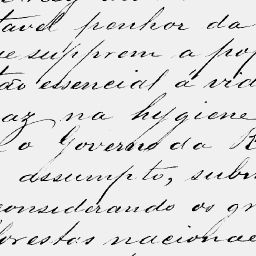 tavel penhor da
e supprem a pop
tão essencial á vid
az na hygiene
e o Governo da R
assumpto, subm
considerando os gr
lorestas nacionae